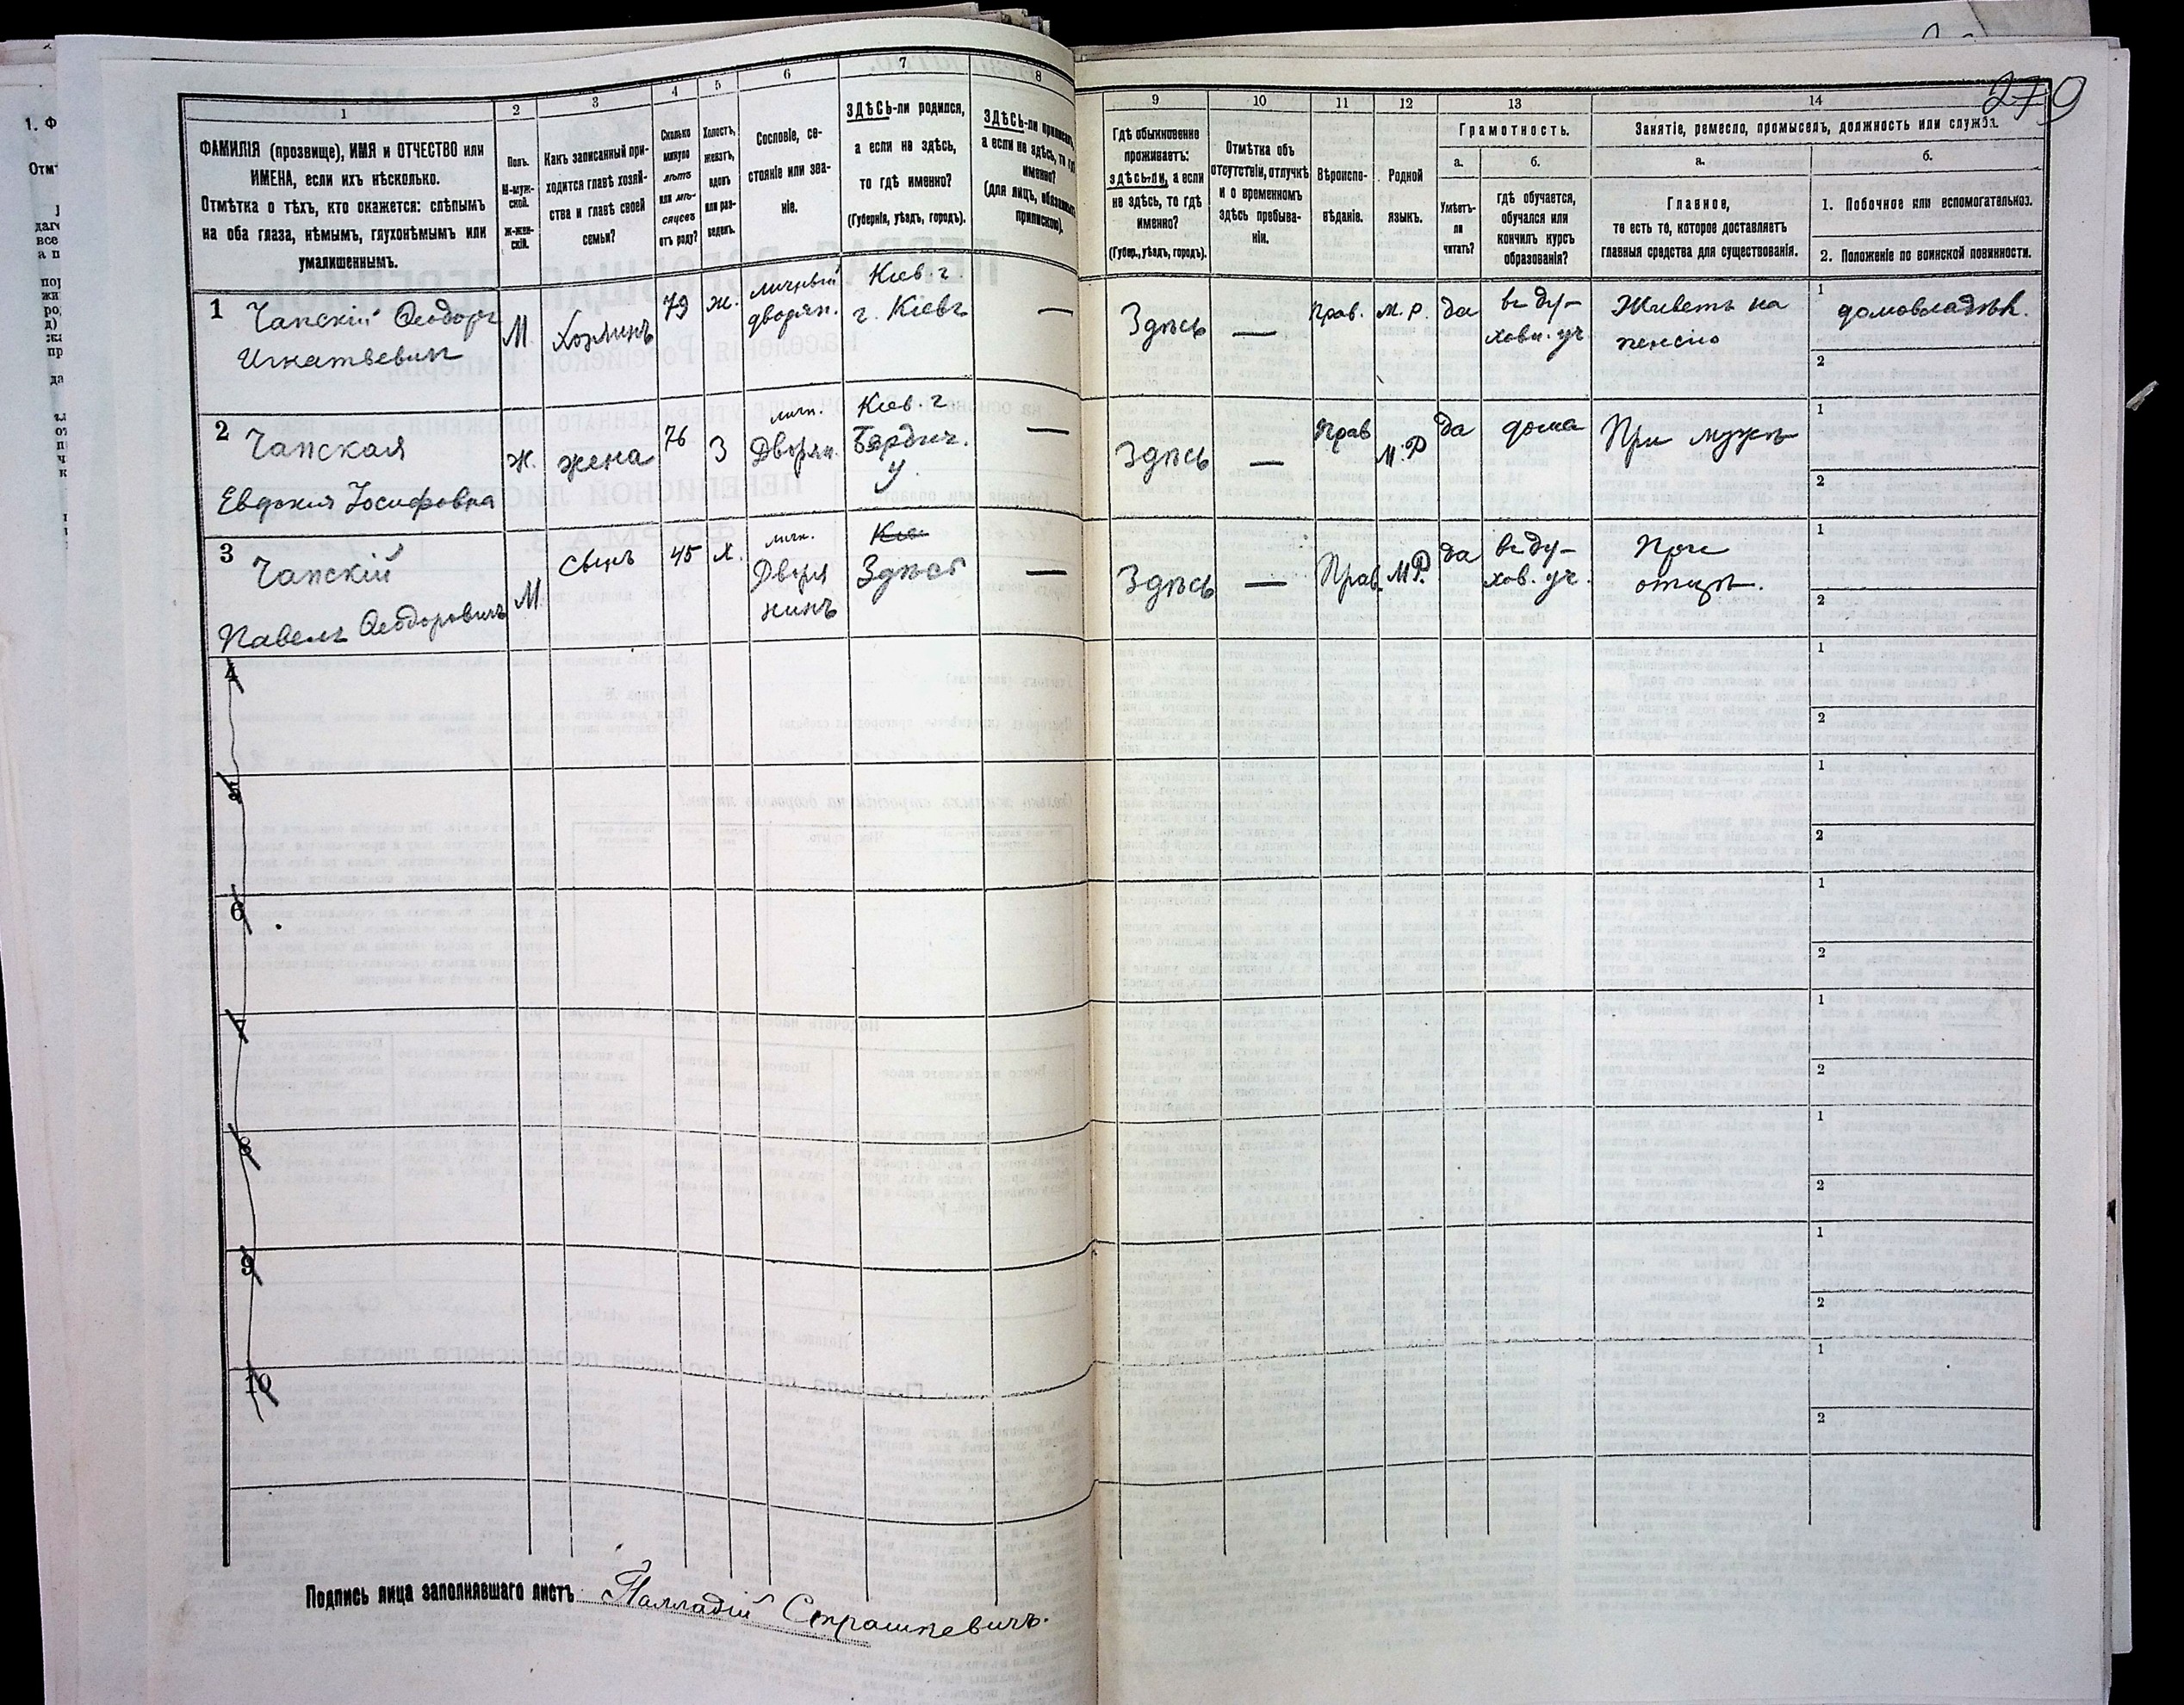 279
1 2 3 4 5 6 7 8 9 10 11 12 13 14
ФАМИЛІЯ (прозвище), ИМЯ и ОТЧЕСТВО или
ИМЕНА, если ихъ нѣсколько.
Отмѣтка о тѣхъ, кто окажется: слѣпымъ
на оба глаза, нѣмымъ, глухонѣмымъ или
умалишеннымъ.
Полъ.
М-муж-
ской.
Ж-жен-
скій.
Какъ записанный при-
ходится главѣ хозяй-
ства и главѣ своей
семьи?
Сколько
минуло
лѣтъ
или мѣ-
сяцевъ
отъ роду?
Холостъ,
женатъ,
вдовъ
или раз-
веденъ.
Сословіе, со-
стояніе или зва-
ніе.
ЗДѢСЬ-ли родился,
а если не здѣсь,
то гдѣ именно?
(Губернія, уѣздъ, городъ).
ЗДѢСЬ-ли приписанъ,
а если не здѣсь, то гдѣ
именно?
(для лицъ, обязанныхъ
припискою).
Гдѣ обыкновенно
проживаетъ:
здѣсь-ли, а если
не здѣсь, то гдѣ
именно?
(Губер., уѣздъ, городъ).
Отмѣтка объ
отсутствіи, отлучкѣ
и о временномъ
здѣсь пребыва-
ніи.
Вѣроиспо-
вѣданіе.
Родной
языкъ.
Грамотность.
а.
Умѣетъ-
ли
читать?
б.
гдѣ обучается,
обучался или
кончилъ курсъ
образованія?
Занятіе, ремесло, промыселъ, должность или служба.
а.
Главное,
то есть то, которое доставляетъ
главныя средства для существованія.
б.
1. Побочное или вспомогательное.
2. Положеніе по воинской повинности.
1 Чапскій Ѳеодоръ
Игнатьевичъ
М
Хозяинъ
79
ж.
личный
дворян.
Кіев. г.
г. Кіевъ
—
Здѣсь
—
Прав.
М. Р.
да
въ ду-
ховн. уч
Живетъ на
пенсію
1 домовладѣл.
2
2 Чапская
Евдокія Іосифовна
ж.
жена
76
З
личн.
Дворян.
Кіев. г
Бердич.
у.
—
Здѣсь
—
Прав
М. Р
да
дома
При мужѣ
1
2
3 Чапскій
Павелъ Ѳеодоровичъ
М
Сынъ
45
х.
личн.
Дворя
нинъ
Кіе
Здѣсь
—
Здѣсь
—
Прав.
М Р.
да
въ ду-
хов. уч.
При
отцѣ.
1
2
4
1
2
5
1
2
6
1
2
7
1
2
8
1
2
9
1
2
10
1
2
Подпись лица заполнявшаго листъ Палладій Страшкевичъ.